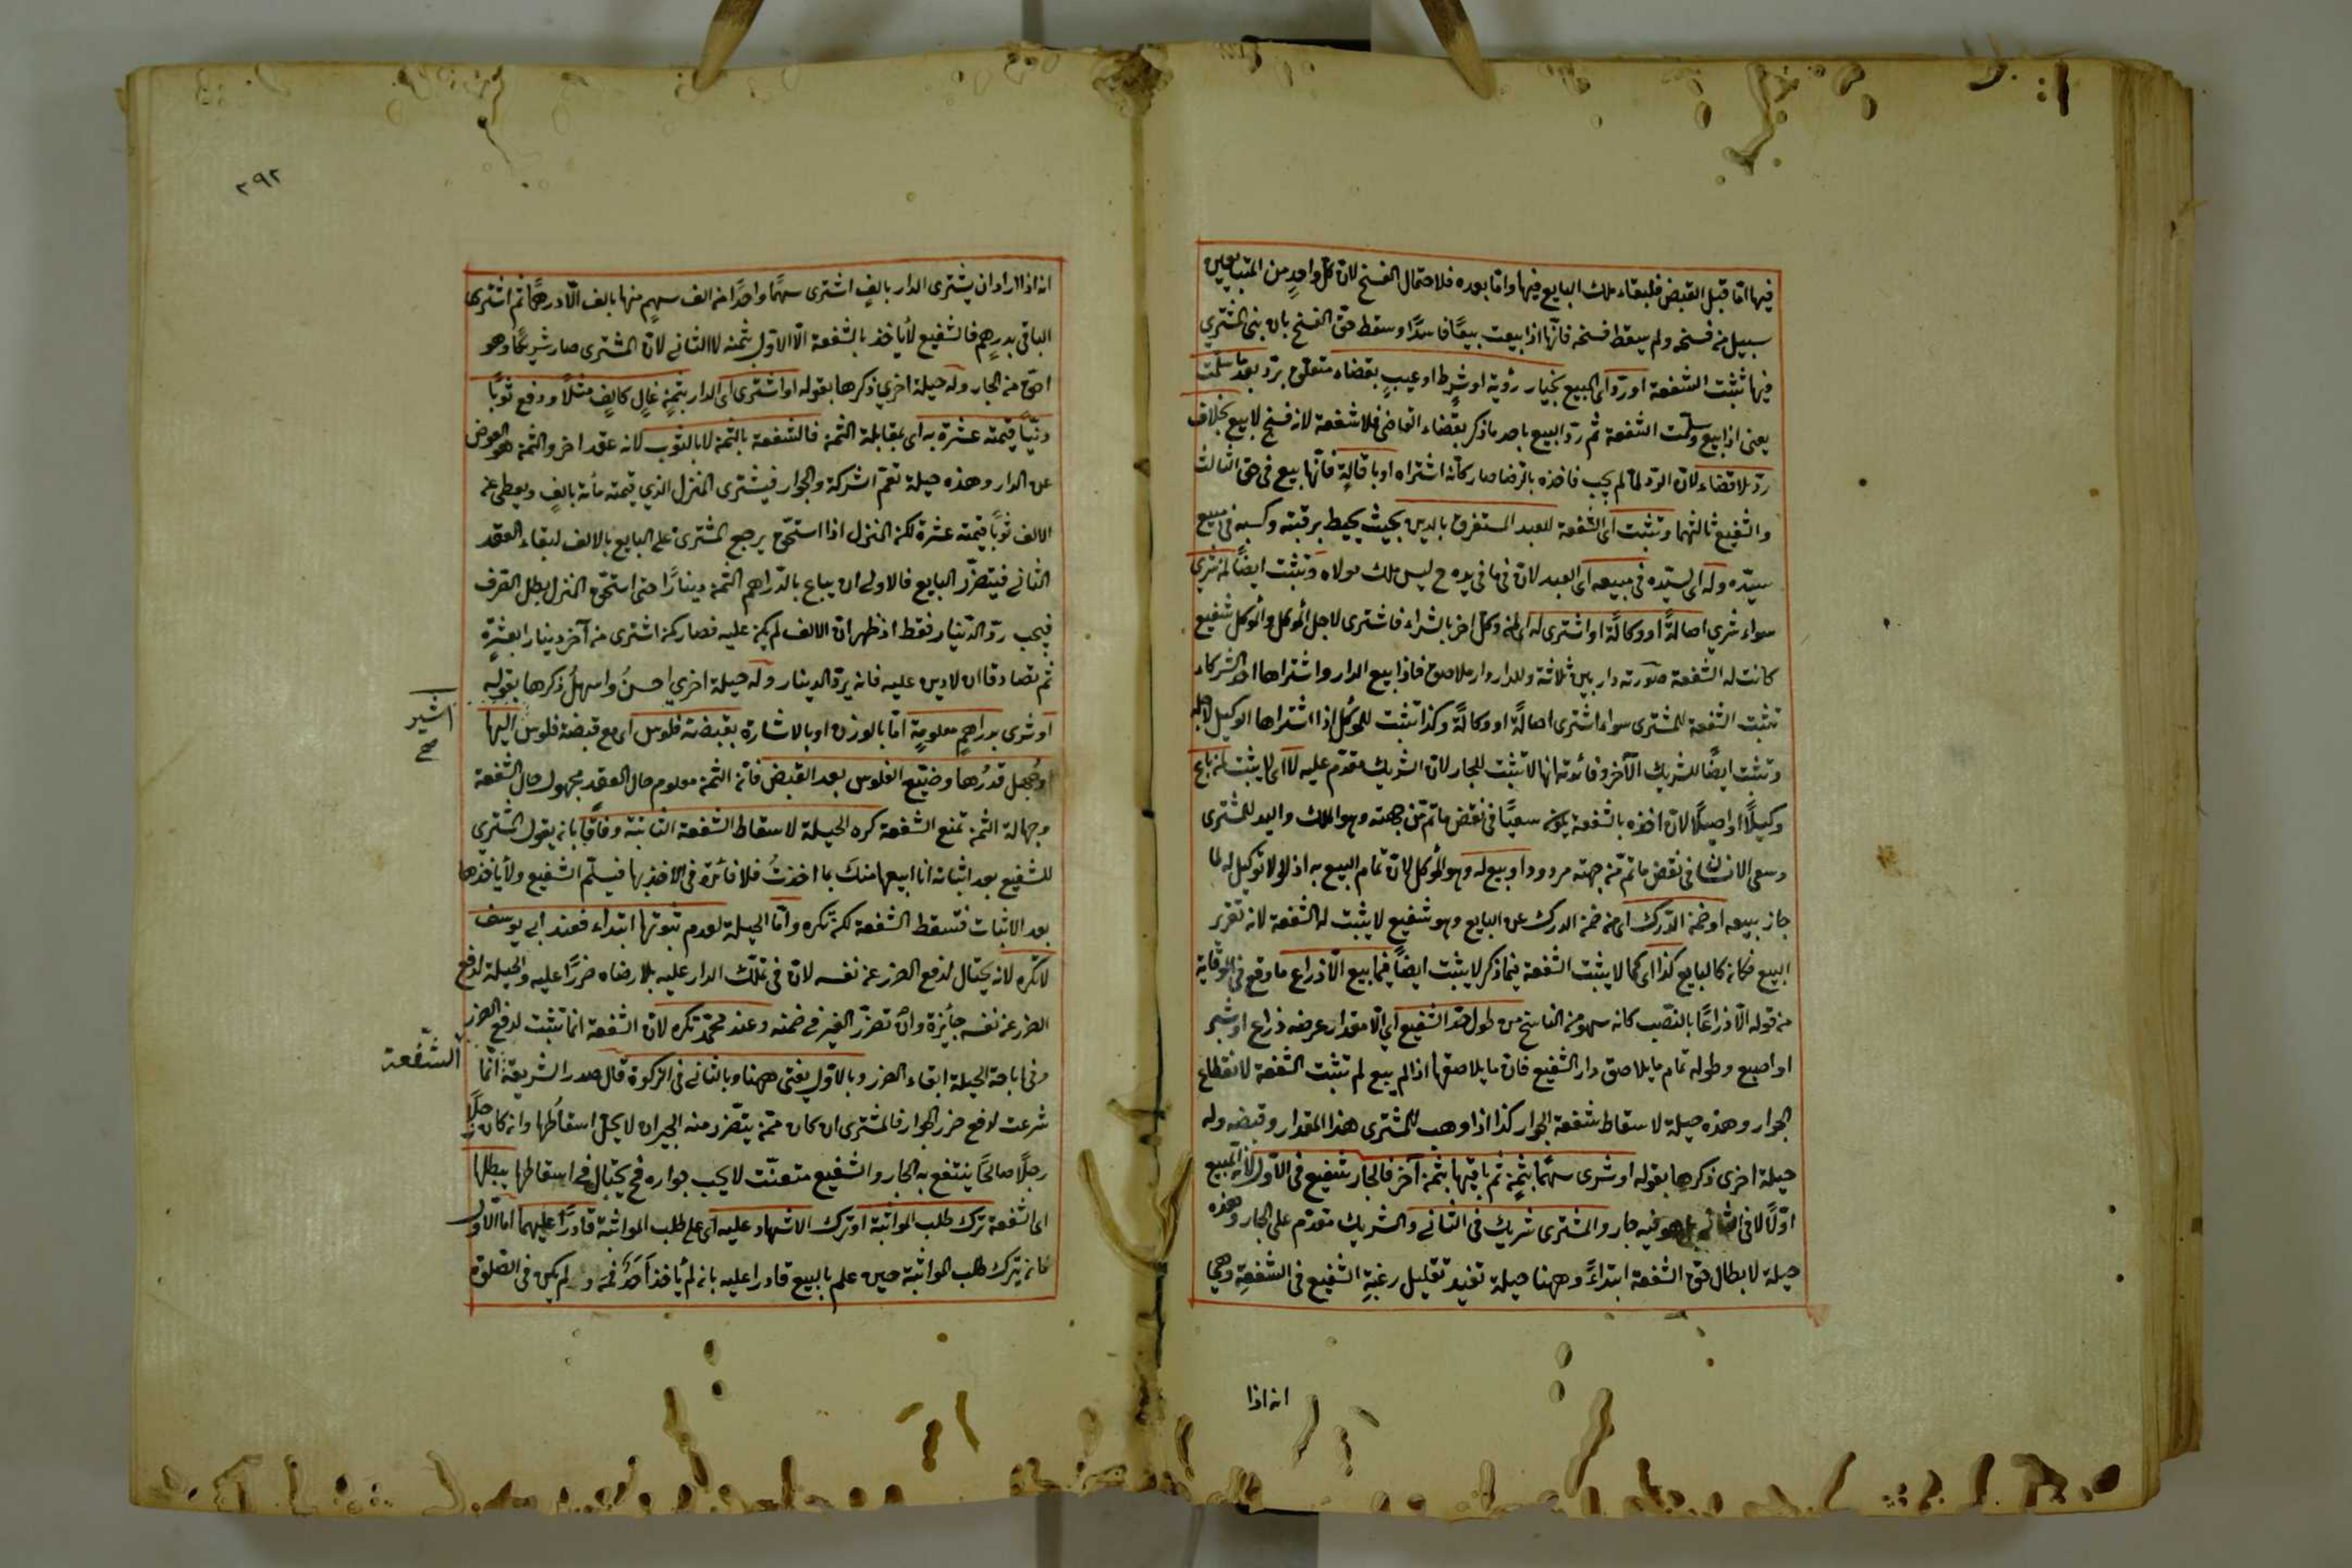 فيها امّا قبل القبض فلبقاء ملك البايع فيها وامّا بعده فلاحتمال الفسخ لانّ كلّ واحدٍ من المتبايعين
سبيل من فسخه ولم يسقط فسخه فانّها اذا بيعت بيعًا فاسدًا وسقط حقّ الفسخ بان بنى المشتري
فيها تثبت الشفعة او ردّ اى المبيع بخيار رؤية او شرط او عيبٍ بقضاء متعلق بردّ بعد ما سلّمت
يعنى اذا بيع وسلّمت الشفعة ثم ردّ البيع باحد ما ذكر بقضاء القاضى فلا شفعة لانه فسخ لا بيع بخلاف
ردّ بلا قضاء لانّ الردّ لمّا لم يجب فاخذه بالرضا صار كانّه اشتراه او باقالةٍ فانّها بيع فى حق الثالث
والشفيع ثالثهما وتثبت اى الشفعة للعبد المستغرق بالدين بحيث يحيط برقبته وكسبه فى مبيع
سيّده وله اى لسيّده فى مبيعه اى العبد لانّ فى ما فى يده ح ليس ملك مولاه وتثبت ايضًا لمن شرى
سواء شرى اصالةً او وكالةً او اشترى له اى لمن وكل اخر بالشراء فاشترى لاجل الموكل والموكل شفيع
كانت له الشفعة صورته دار بين ثلاثة وللدار دار ملاصق فاذا بيع الدار واشتراها احد الشركاء
تثبت الشفعة للمشترى سواء اشترى اصالةً او وكالةً وكذا تثبت للموكّل اذا اشتراها الوكيل لاجله
وتثبت ايضًا للشريك الآخر وفائدته انها لا تثبت للجار لانّ الشريك مقدّم عليه لا اى لا يثبت لمن باع
وكيلًا او اصيلًا لانّ اخذه بالشفعة يكون سعيًا فى نقض ما تم من جهته وهو الملك واليد للمشترى
وسعى الانسان فى نقض ما تمّ من جهته مردود او بيع له وهو الموكل لانّ تمام البيع به اذ لولا توكيله لما
جاز بيعه او ضمن الدّرك اى من ضمن الدرك عن البايع وهو شفيع لا يثبت له الشفعة لانه تقرير
البيع فكانه كالبايع كذا اى كما لا يثبت الشفعة فيما ذكر لا يثبت ايضًا فيما بيع الّا ذراع ما وقع فى الوقاية
من قوله الّا ذراعًا بالنصب كانه سهو من الناسخ من طول حدّ الشفيع اى الّا مقدار عرضه ذراع او شبر
او اصبع وطوله تمام ما يلاصق دار الشفيع فان ما يلاصقها اذا لم يبع لم تثبت الشفعة لانقطاع
الجوار وهذه حيلة لاسقاط شفعة الجوار كذا اذا وهب للمشترى هذا المقدار وقبضه وله
حيلة اخرى ذكرها بقوله او شرى سهمًا بثمن ثم باقيها بثمن آخر فالجار شفيع فى الاول لانه المبيع
اوّلًا لا فى الثانى فيه جار والمشترى شريك فى الثانى والشريك مقدّم على الجار وهذه
حيلة لابطال حق الشفعة ابتداءً وههنا حيلة تفيد تقليل رغبة الشفيع فى الشفعة وهى
انه اذا
٢٩٢
انه اذا اراد ان يشترى الدار بالفٍ اشترى سهمًا واحدًا من الف سهمٍ منها بالف الّا درهمًا ثم اشترى
الباقى بدرهم فالشفيع لا يأخذ بالشفعة الّا الاوّل بثمنه لا الثانى لانّ المشترى صار شريكًا وهو
احقّ من الجار وله حيلة اخرى ذكرها بقوله او اشترى اى الدار بثمنٍ غالٍ كالفٍ مثلًا ودفع ثوبًا
دنيًّا قيمته عشرة به اى بمقابلة الثمن فالشفعة بالثمن لا بالثوب لانه عقد اخر والثمن هو العوض
عن الدار وهذه حيلة تعم الشركة والجوار فيشترى المنزل الذي قيمته مأئة بالفٍ ويعطى عن
الالف ثوبًا قيمته عشرة لكن المنزل اذا استحق يرجع المشترى على البايع بالالف لبقاء العقد
الثانى فيتضرّر البايع فالاولى ان يباع بالدّراهم الثمن دينارًا حتى استحق المنزل يبطل الصرف
فيجب ردّ الدينار فقط اذ ظهر ان الالف لم يكن عليه فصار كمن اشترى من آخر دينارا بعشرة
ثم تصادقا ان لا دين عليه فانه يردّ الدينار وله حيلة اخرى احسن واسهل ذكرها بقوله
او شرى بدراهم معلومةٍ امّا بالوزن او بالاشارة بقبضة فلوس اى مع قبضة فلوس اليها
اشير
صح
وجهل قدرها وضيّع الفلوس بعد القبض فانّ الثمن معلوم حال العقد مجهول حال الشفعة
وجهالة الثمن تمنع الشفعة كره الحيلة لاسقاط الشفعة الثابتة وفاقًا بان يقول المشترى
للشفيع بعد اثباته انا ابيعها منك بما اخذتُ فلا فائدة فى الاخذ بها فيسلّم الشفيع ولا يأخذها
بعد الاثبات فتسقط الشفعة لكن تكره وامّا الحيلة لعدم ثبوتها ابتداء فعند ابى يوسف
لا تكره لانه يحتال لدفع الضرر عن نفسه لانّ فى تملّك الدار عليه بلا رضاه ضررًا عليه والحيلة لدفع
الضرر عن نفسه جايزة وان تضرّر الغير فى ضمنه وعند محمّد تكره لانّ الشفعة انما تثبت لدفع الضرر
وفى اباحة الحيلة ابقاء الضرر وبالاوّل يفتى ههنا وبالثانى فى الزكوة قال صدر الشريعة انّما
الشفعة
شرعت لدفع ضرر الجوار فالمشترى ان كان ممّن يتضرّر منه الجيران لا يحل اسقاطها وان كان رجلًا
رجلًا صالحًا ينتفع به الجار والشفيع متعنّت لا يحب جواره فح يحتال فى اسقاطها يبطلها
اى الشفعة ترك طلب المواثبة او ترك الاشهاد عليه اى على طلب المواثبة قادرًا عليهما امّا الاول
فانه يترك طلب المواثبة حين علم بالبيع قادرا عليه بان لم يأخذ احدٌ فمه و لم يكن فى الصلوة